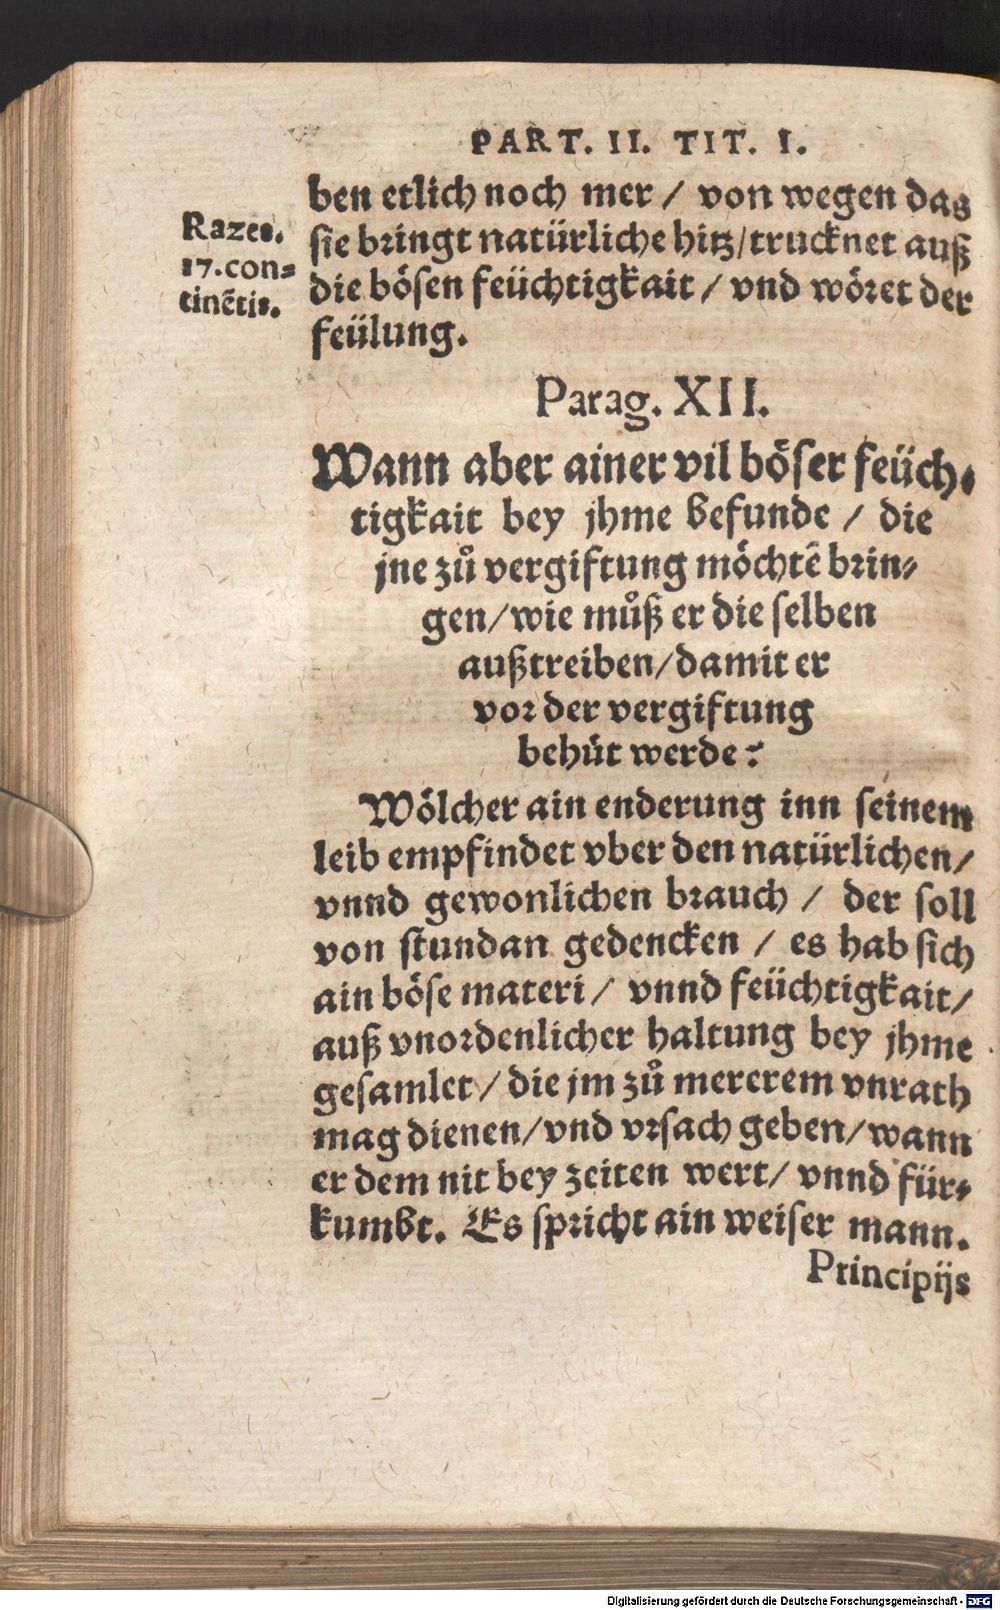 PART. II. TIT. I.
ben etlich noch mer / von wegen das
sie bringt natürliche hitz/trucknet auß
die bösen feüchtigkait / vnd wöret der
feülung.
Razes.
17.con-
tinẽtis.
Parag. XII.
Wann aber ainer vil böser feüch-
tigkait bey jhme befunde / die
jne zů vergiftung möchtẽ brin-
gen/wie můß er die selben
außtreiben/damit er
vor der vergiftung
behüt werde?
Wölcher ain enderung inn seinem
leib empfindet vber den natürlichen/
vnnd gewonlichen brauch / der soll
von stundan gedencken / es hab sich
ain böse materi / vnnd feüchtigkait/
auß vnordenlicher haltung bey jhme
gesamlet / die jm zů mererem vnrath
mag dienen/vnd vrsach geben/wann
er dem nit bey zeiten wert/ vnnd für-
kumbt. Es spricht ain weiser mann.
Principijs
Digitalisierung gefördert durch die Deutsche Forschungsgemeinschaft - DFG